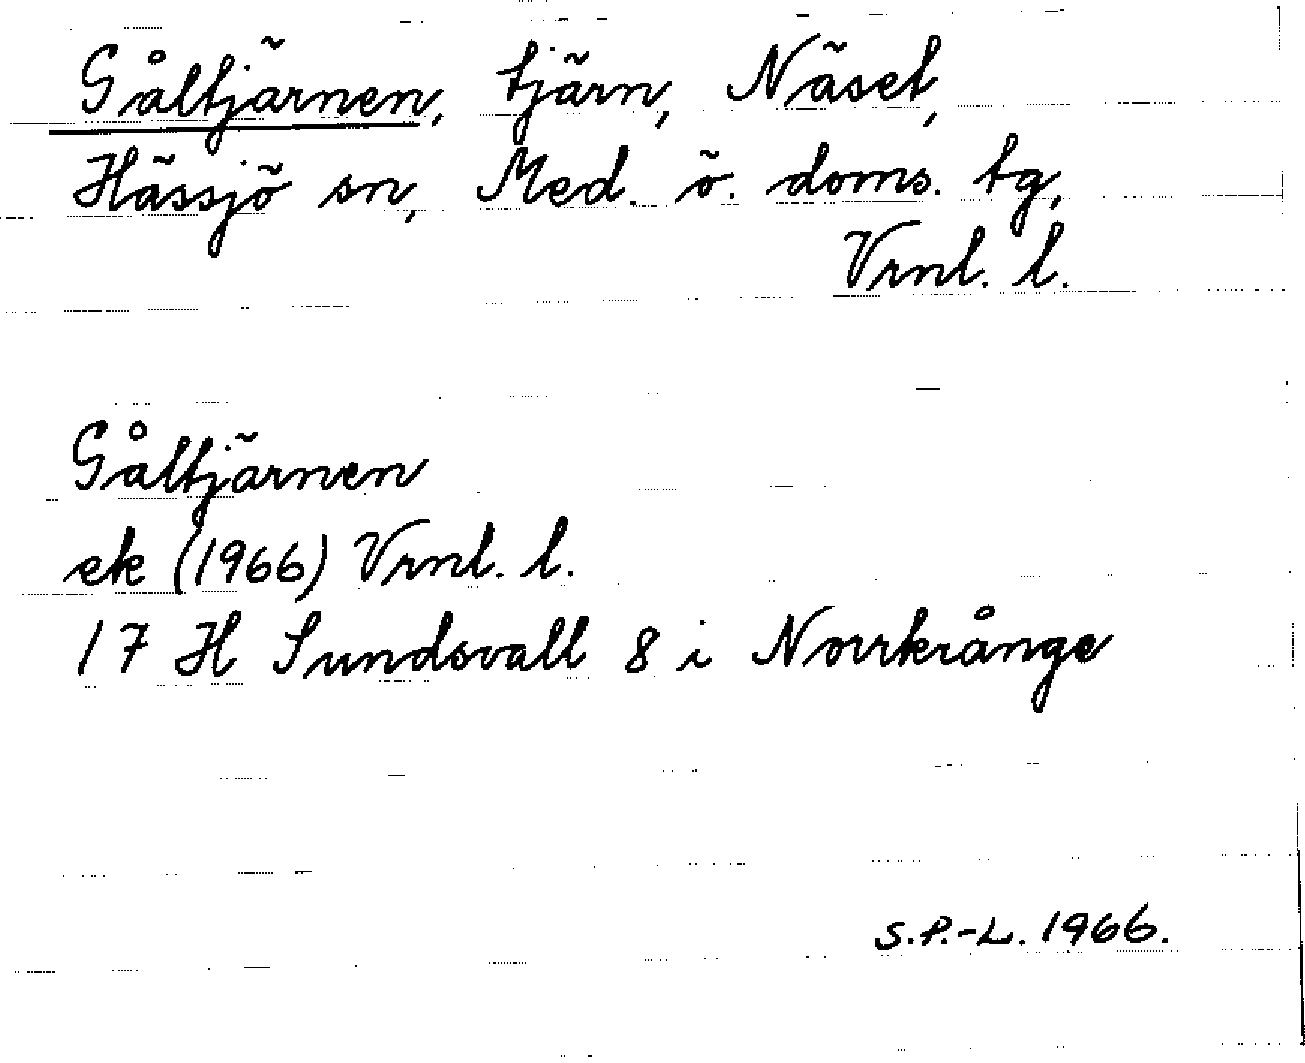 Gåltjärnen, tjärn, Näset,
Hässjö sn, Med. ö. doms. tg,
Vrnl. l.
Gåltjärnen
ek (1966) Vrnl. l.
17 H Sundsvall 8 i Norrkrånge
S.P.-L. 1966.